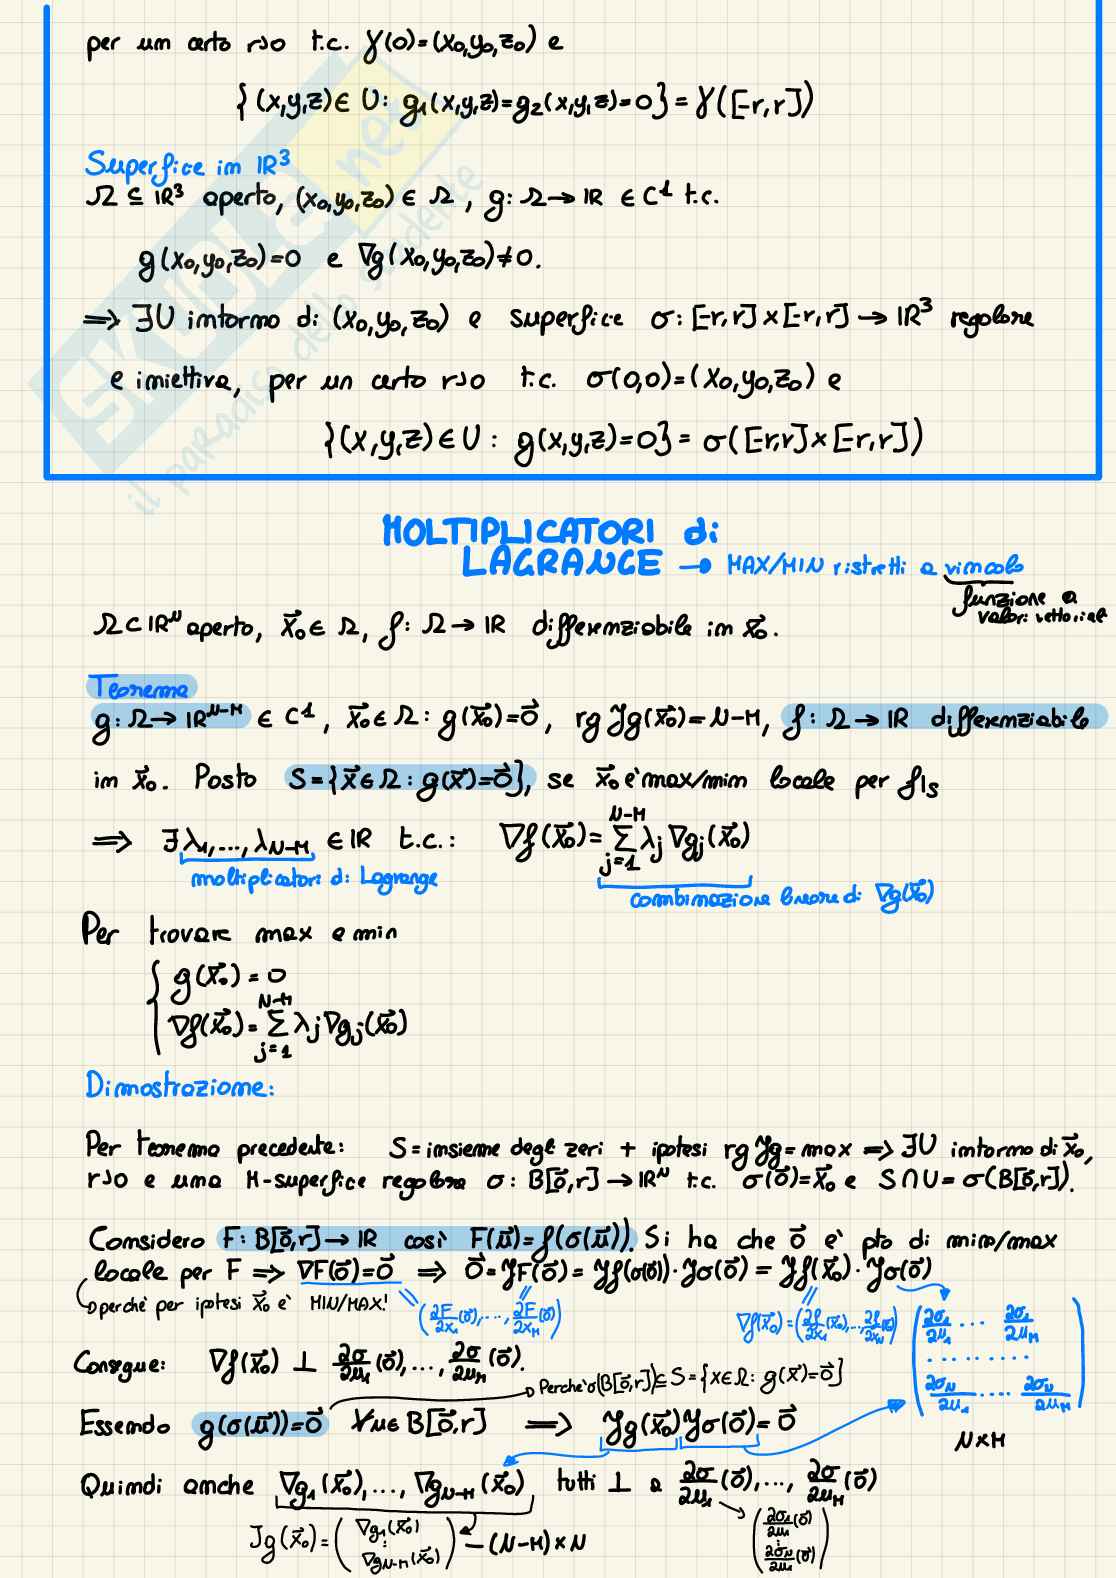 per un certo r>0 t.c. γ(0)=(x₀,y₀,z₀) e
{(x,y,z)∈ U: g₁(x,y,z)=g₂(x,y,z)=0} = γ([-r,r])
Superfice in ℝ³
Ω ⊆ ℝ³ aperto, (x₀,y₀,z₀) ∈ Ω, g: Ω→ℝ ∈ C¹ t.c.
g(x₀,y₀,z₀)=0 e ∇g(x₀,y₀,z₀)≠0.
⇒ ∃U intorno di (x₀,y₀,z₀) e superfice σ: [-r,r]×[-r,r] → ℝ³ regolare
e iniettiva, per un certo r>0 t.c. σ(0,0)=(x₀,y₀,z₀) e
{(x,y,z) ∈ U : g(x,y,z)=0} = σ([-r,r]×[-r,r])
SKUOLA.net
il paradiso dello studente
MOLTIPLICATORI di
LAGRANGE → MAX/MIN ristretti a vincolo
funzione a
valori vettoriali
Ω⊂ℝᴺ aperto, x⃗₀∈ Ω, f: Ω→ℝ differenziabile in x⃗₀.
Teorema
g: Ω→ℝᴺ⁻ᴹ ∈ C¹, x⃗₀∈ Ω: g(x⃗₀)=0⃗, rg Jg(x⃗₀)= N-M, f: Ω→ℝ differenziabile
in x⃗₀. Posto S={x⃗∈ Ω: g(x⃗)=0⃗}, se x⃗₀ è max/min locale per f|s
⇒ ∃ λ₁,...,λN-M ∈ ℝ t.c.: ∇f(x⃗₀)= Σ_{j=1}^{N-M} λj ∇gj(x⃗₀)
moltiplicatori di Lagrange
combinazione lineare di ∇g(x⃗₀)
Per trovare max e min
{ g(x⃗₀) = 0
∇f(x⃗₀)= Σ_{j=1}^{N-M} λj ∇gj(x⃗₀)
Dimostrazione:
Per teorema precedente: S=insieme degli zeri + ipotesi rg Jg= max ⇒ ∃U intorno di x⃗₀,
r>0 e una M-superfice regolare σ: B[0⃗,r] → ℝᴺ t.c. σ(0⃗)=x⃗₀ e S∩U= σ(B[0⃗,r]).
Considero F: B[0⃗,r]→ℝ così F(u⃗)=f(σ(u⃗)). Si ha che 0⃗ è pto di min/max
locale per F ⇒ ∇F(0⃗)=0⃗ ⇒ 0⃗=JF(0⃗)= Jf(σ(0⃗))·Jσ(0⃗) = Jf(x⃗₀)·Jσ(0⃗)
perché per ipotesi x⃗₀ è MIN/MAX!
(∂F/∂x₁(0⃗),...,∂F/∂xM(0⃗))
∇f(x⃗₀)=(∂f/∂x₁(x⃗₀),...,∂f/∂xN(x⃗₀))
(∂σ₁/∂u₁ ... ∂σ₁/∂uM
..........
∂σN/∂u₁ ..... ∂σN/∂uM)
N×M
Consegue: ∇f(x⃗₀) ⊥ ∂σ/∂u₁(0⃗),...,∂σ/∂uM(0⃗).
Perché σ(B[0⃗,r])⊆ S = {x∈Ω: g(x⃗)=0⃗}
Essendo g(σ(u⃗))=0⃗ ∀u∈ B[0⃗,r] ⇒ Jg(x⃗₀)Jσ(0⃗)= 0⃗
Quindi anche ∇g₁(x⃗₀),..., ∇gN-M(x⃗₀) tutti ⊥ a ∂σ/∂u₁(0⃗),..., ∂σ/∂uM(0⃗)
Jg(x⃗₀)=(∇g₁(x⃗₀) : ∇gN-M(x⃗₀)) — (N-M)×N
(∂σ₁/∂u₁(0⃗) : ∂σN/∂u₁(0⃗))